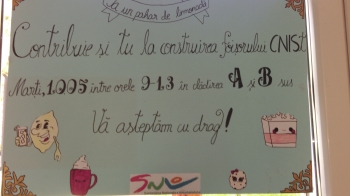 a un pahar de limonadă
Contribuie și tu la construirea foișorului CNISt
Marți, 1.005 între orele 9-13 în clădirea A și B sus
Vă așteptăm cu drag!